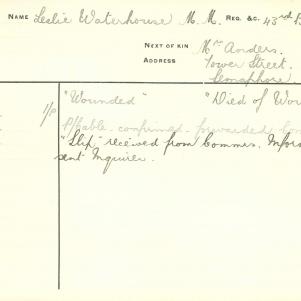 NAME Leslie Waterhouse M. M. REG. &C. 43rd B
NEXT OF KIN Mrs Anders.
ADDRESS Tower Street.
Semaphore.
1/P "Wounded" "Died of Wou
Probable - confirmed - forwarded
"Slip" received from Commrs. Infor
sent Inquirer.